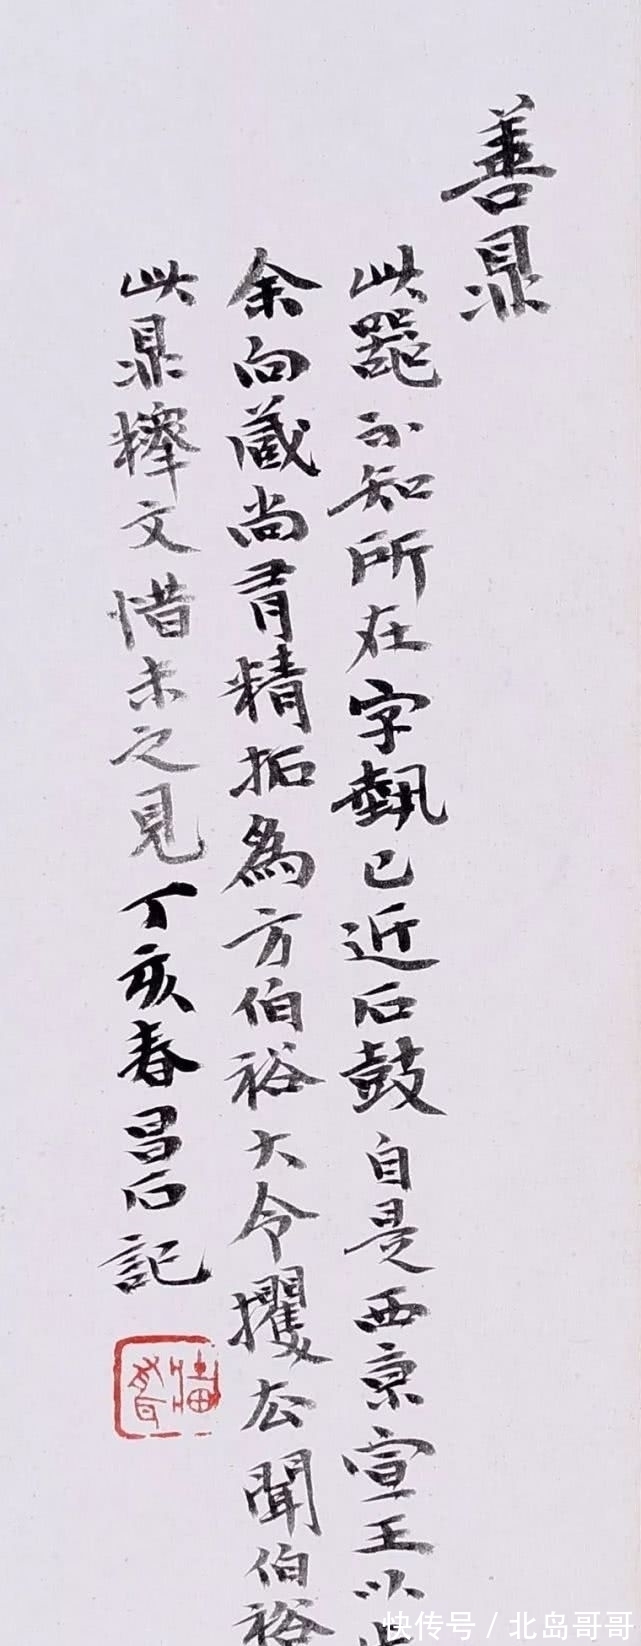 善鼎
此器不知所在字埶已近石鼓自是西京宣王以
余向藏尚有精拓為方伯裕大令攫去聞伯裕
此鼎釋文惜未之見丁亥春昌石記
快传号 / 北岛哥哥